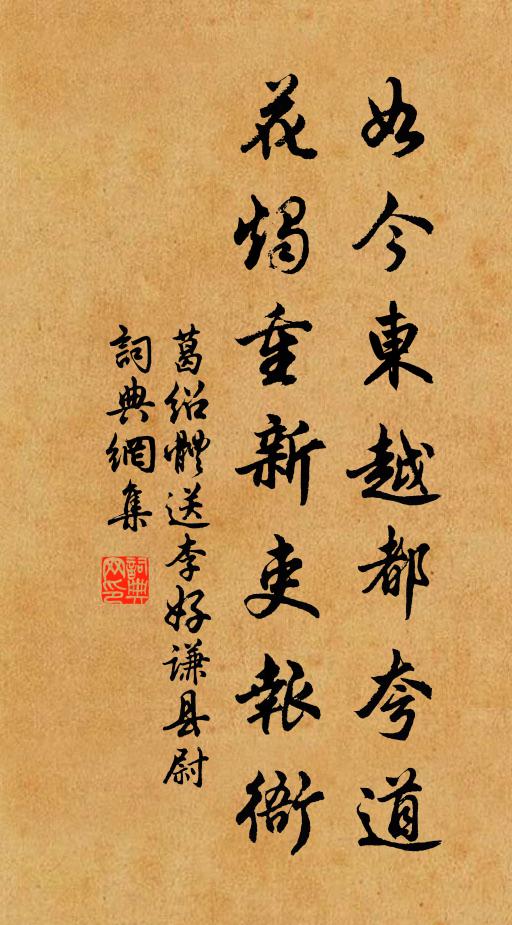 如今東越都夸道
花燭重新吏報衙
葛绍體送李好謙县尉
詞典網集
詞典网印